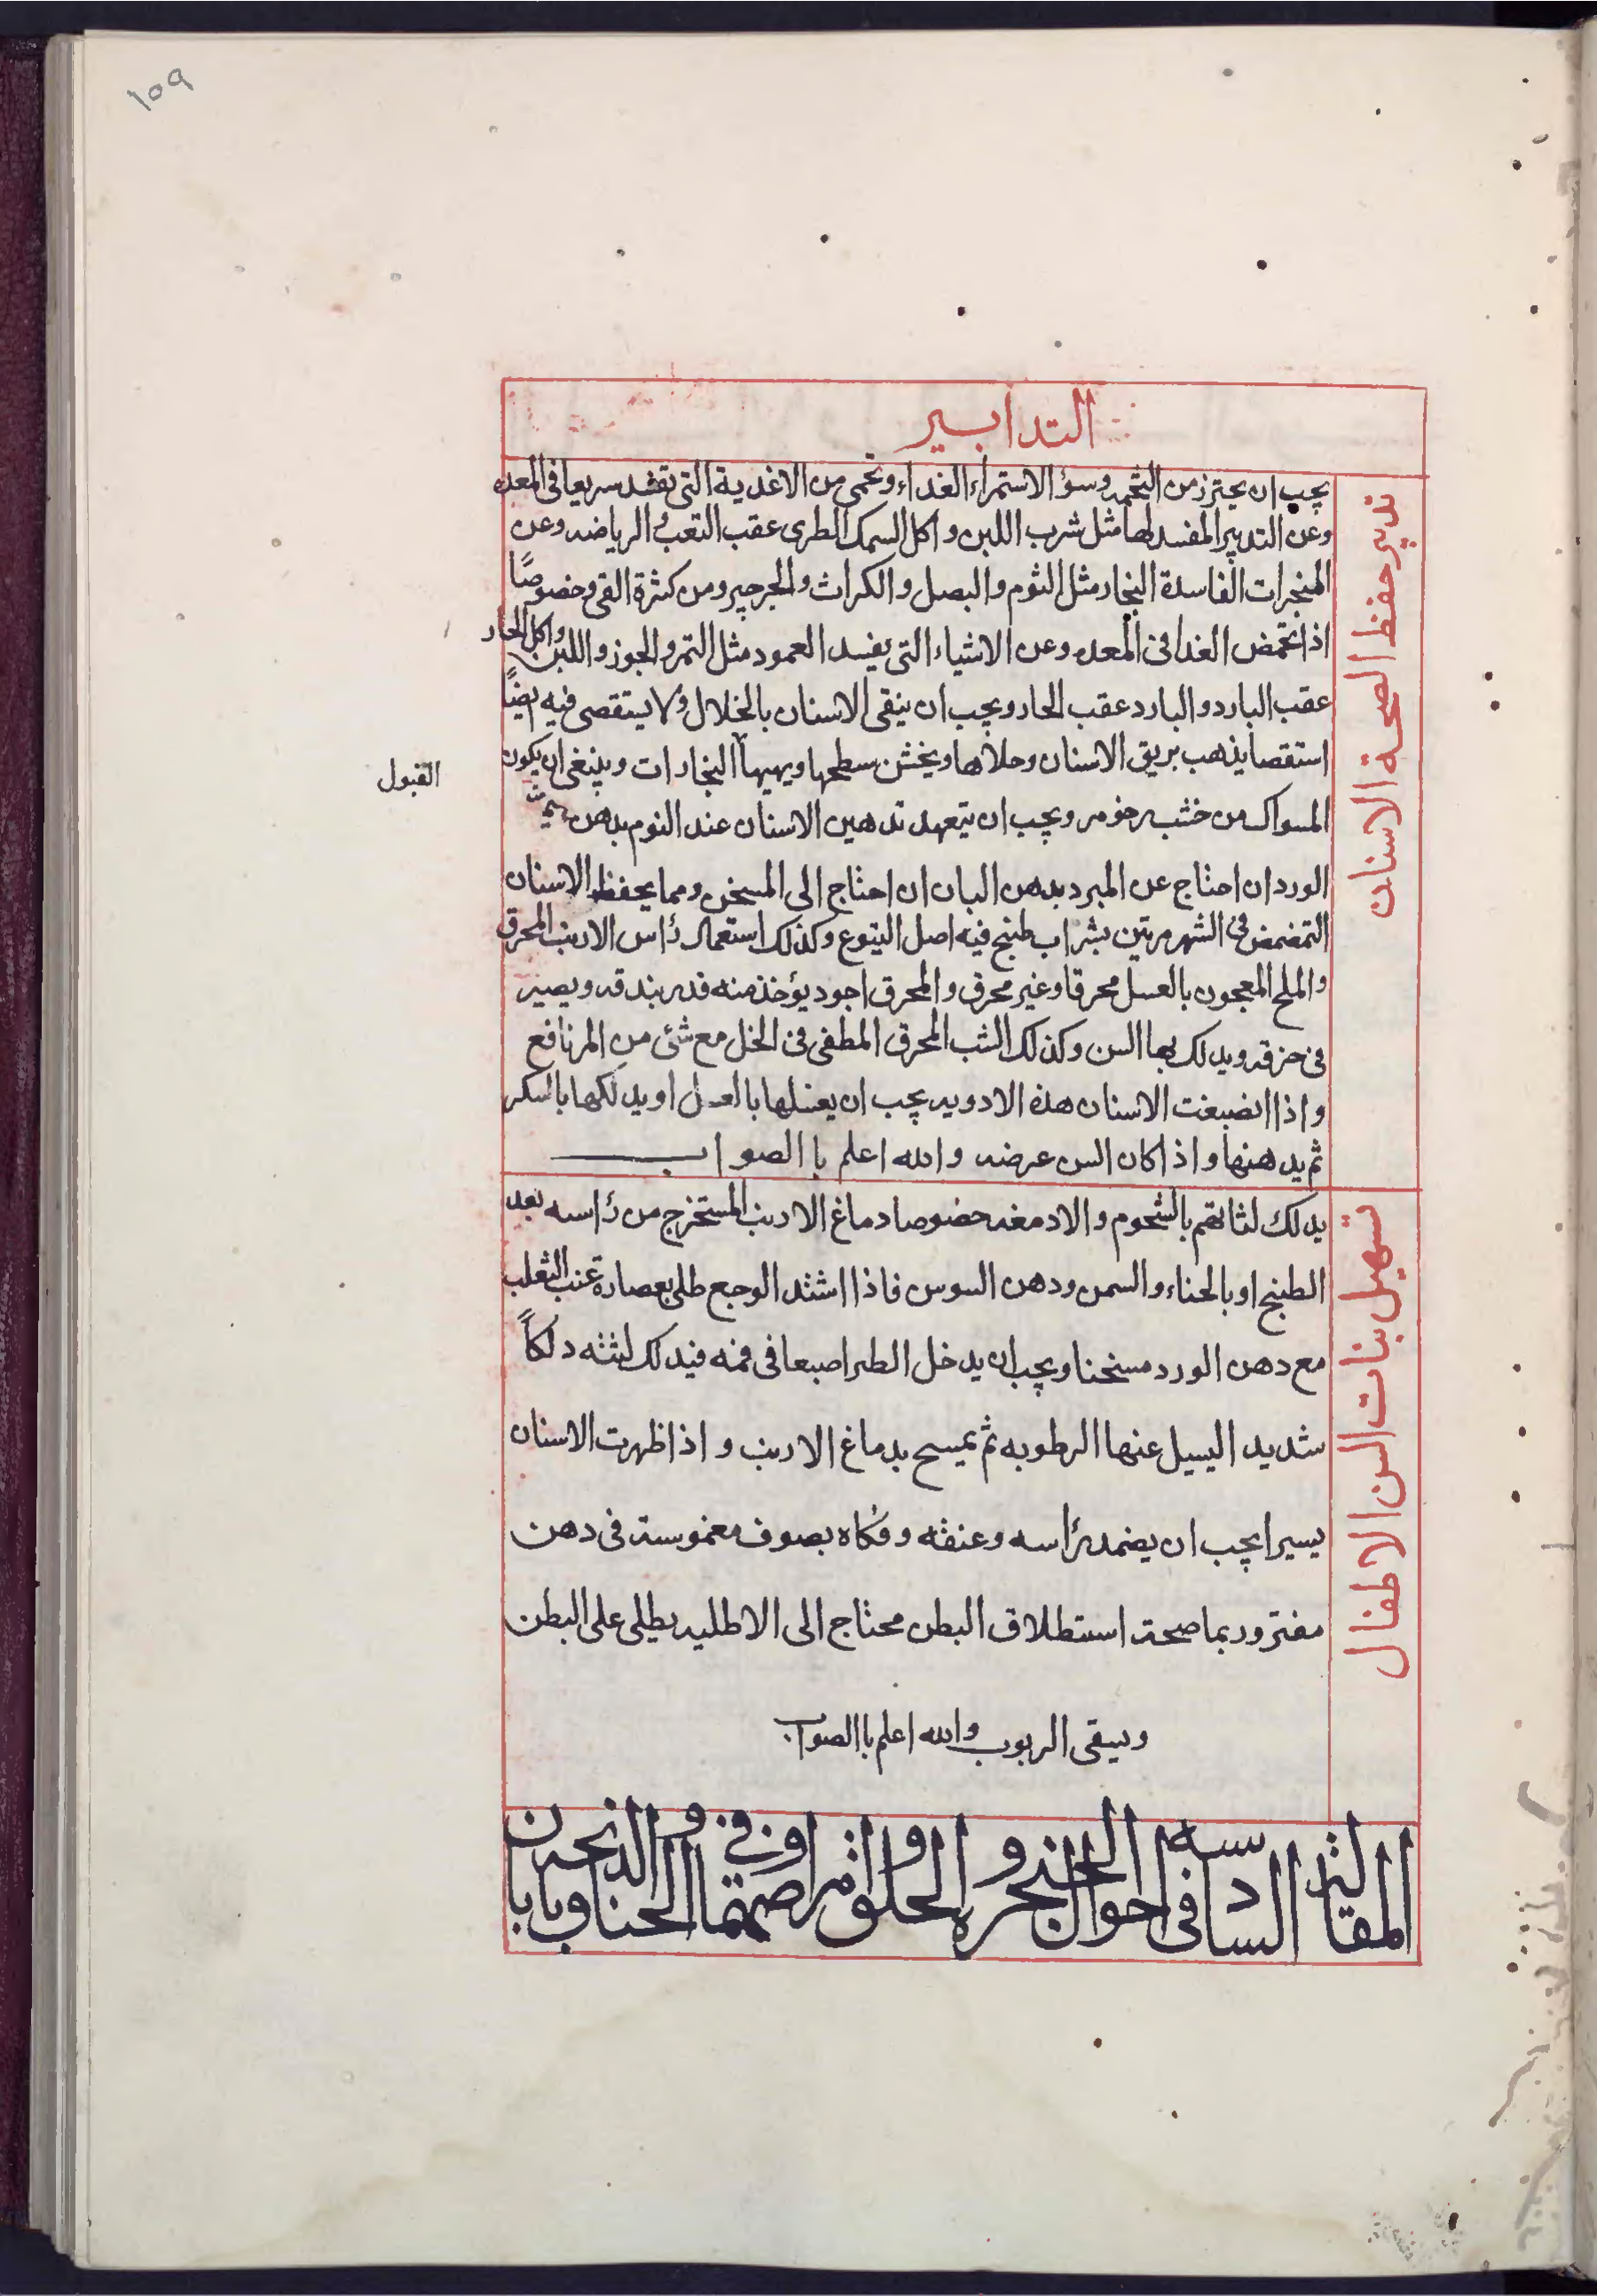 ١٥٩
التدابير
تدبير حفظ الصحة الاسنان
يجب ان يحترز من التخمه وسؤ الاستمراء الغداء وتحمى من الاغدية التى تفسد سريعا فى المعده
وعن التدبير المفسد لها مثل شرب اللبن واكل السمك الطرى عقب التعب و الرياضه وعن
المبخرات الفاسدة البخار مثل الثوم والبصل والكراث والجرجير ومن كثرة القى وخصوصًا
اذا تحمض الغدا فى المعده وعن الاشياء التى يفسد العمود مثل التمر والجوز واللبن واكل الحار
عقب البارد والبارد عقب الحار ويجب ان ينقى الاسنان بالخلال ولا يستقصى فيه ايضًا
استقصا يذهب بريق الاسنان وحلاها ويخشن سطحها ويهيها البخارات وينبغى ان يكون
القبول
المسواك من خشب رخو مر ويجب ان يتعهد تدهين الاسنان عند النوم بدهن
الورد ان احتاج عن المبرد بدهن البان ان احتاج الى المسخن ومما يحفظ الاسنان
التمضمض فى الشهر مرتين بشراب طبخ فيه اصل اليتوع وكذلك استعمال رأس الارنب المحرق
والملح المعجون بالعسل محرقا وغير محرق والمحرق اجود يؤخذ منه قدر بندقه ويصير
فى خرقه ويدلك بها السن وكذلك الشب المحرق المطفى فى الخل مع شئ من المر نافع
واذا انضبغت الاسنان هذه الادويه يجب ان يغسلها بالعسل او يدلكها بالسكر
ثم يدهنها واذا كان السن عرضه والله اعلم با الصواب
تسهيل بنات السن الاطفال
يدلك لثاتهم بالشحوم والادمغه خصوصا دماغ الارنب المستخرج من رأسه بعد
الطبخ او بالحناء والسمن ودهن السوس فاذا اشتد الوجع طلى بعصارة عنب الثعلب
مع دهن الورد مسخنا ويجب ان يدخل الطير اصبعا فى فمه فيدلك لثته دلكاً
شديد اليسيل عنها الرطوبه ثم يمسح بدماغ الارنب واذا ظهرت الاسنان
يسيرا يجب ان يضمد رأسه وعنقه وفكاه بصوف مغموسة فى دهن
مفتر وربما صحت استطلاق البطن محتاج الى الاطليه يطلى على البطن
ويسقى الربوب والله اعلم با الصواب
المقالثه السادسه فى احوال الحنجره والحلق وامراضهما وفى الخناق والذبحه ن بابا